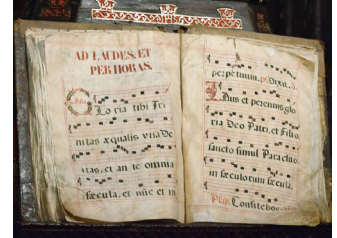 AD LAUDES, ET
PER HORAS.
Loria tibi Tri
nitas æqualis una De
itas, et an te omnia
sæcula, et nūc et in
perpetuum. ps. Dixit.
Laus et perennis glo
ria Deo Patri, et Filio
sancto simul Paraclito,
in sæculorum sæcula.
Confitebor